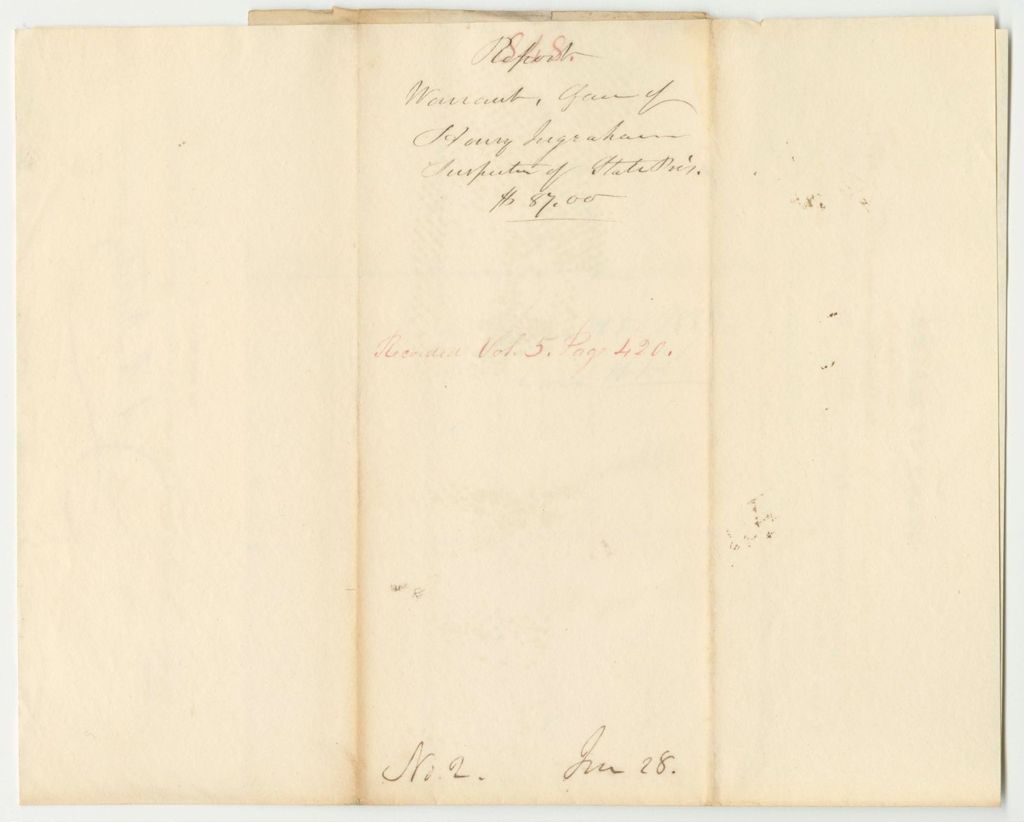 848.
Report
Warrant, favr of
Henry Ingraham
Inspector of State Pris.
$ 87.00
Recorded Vol. 5. Page 420.
No. 2. Jan 28.